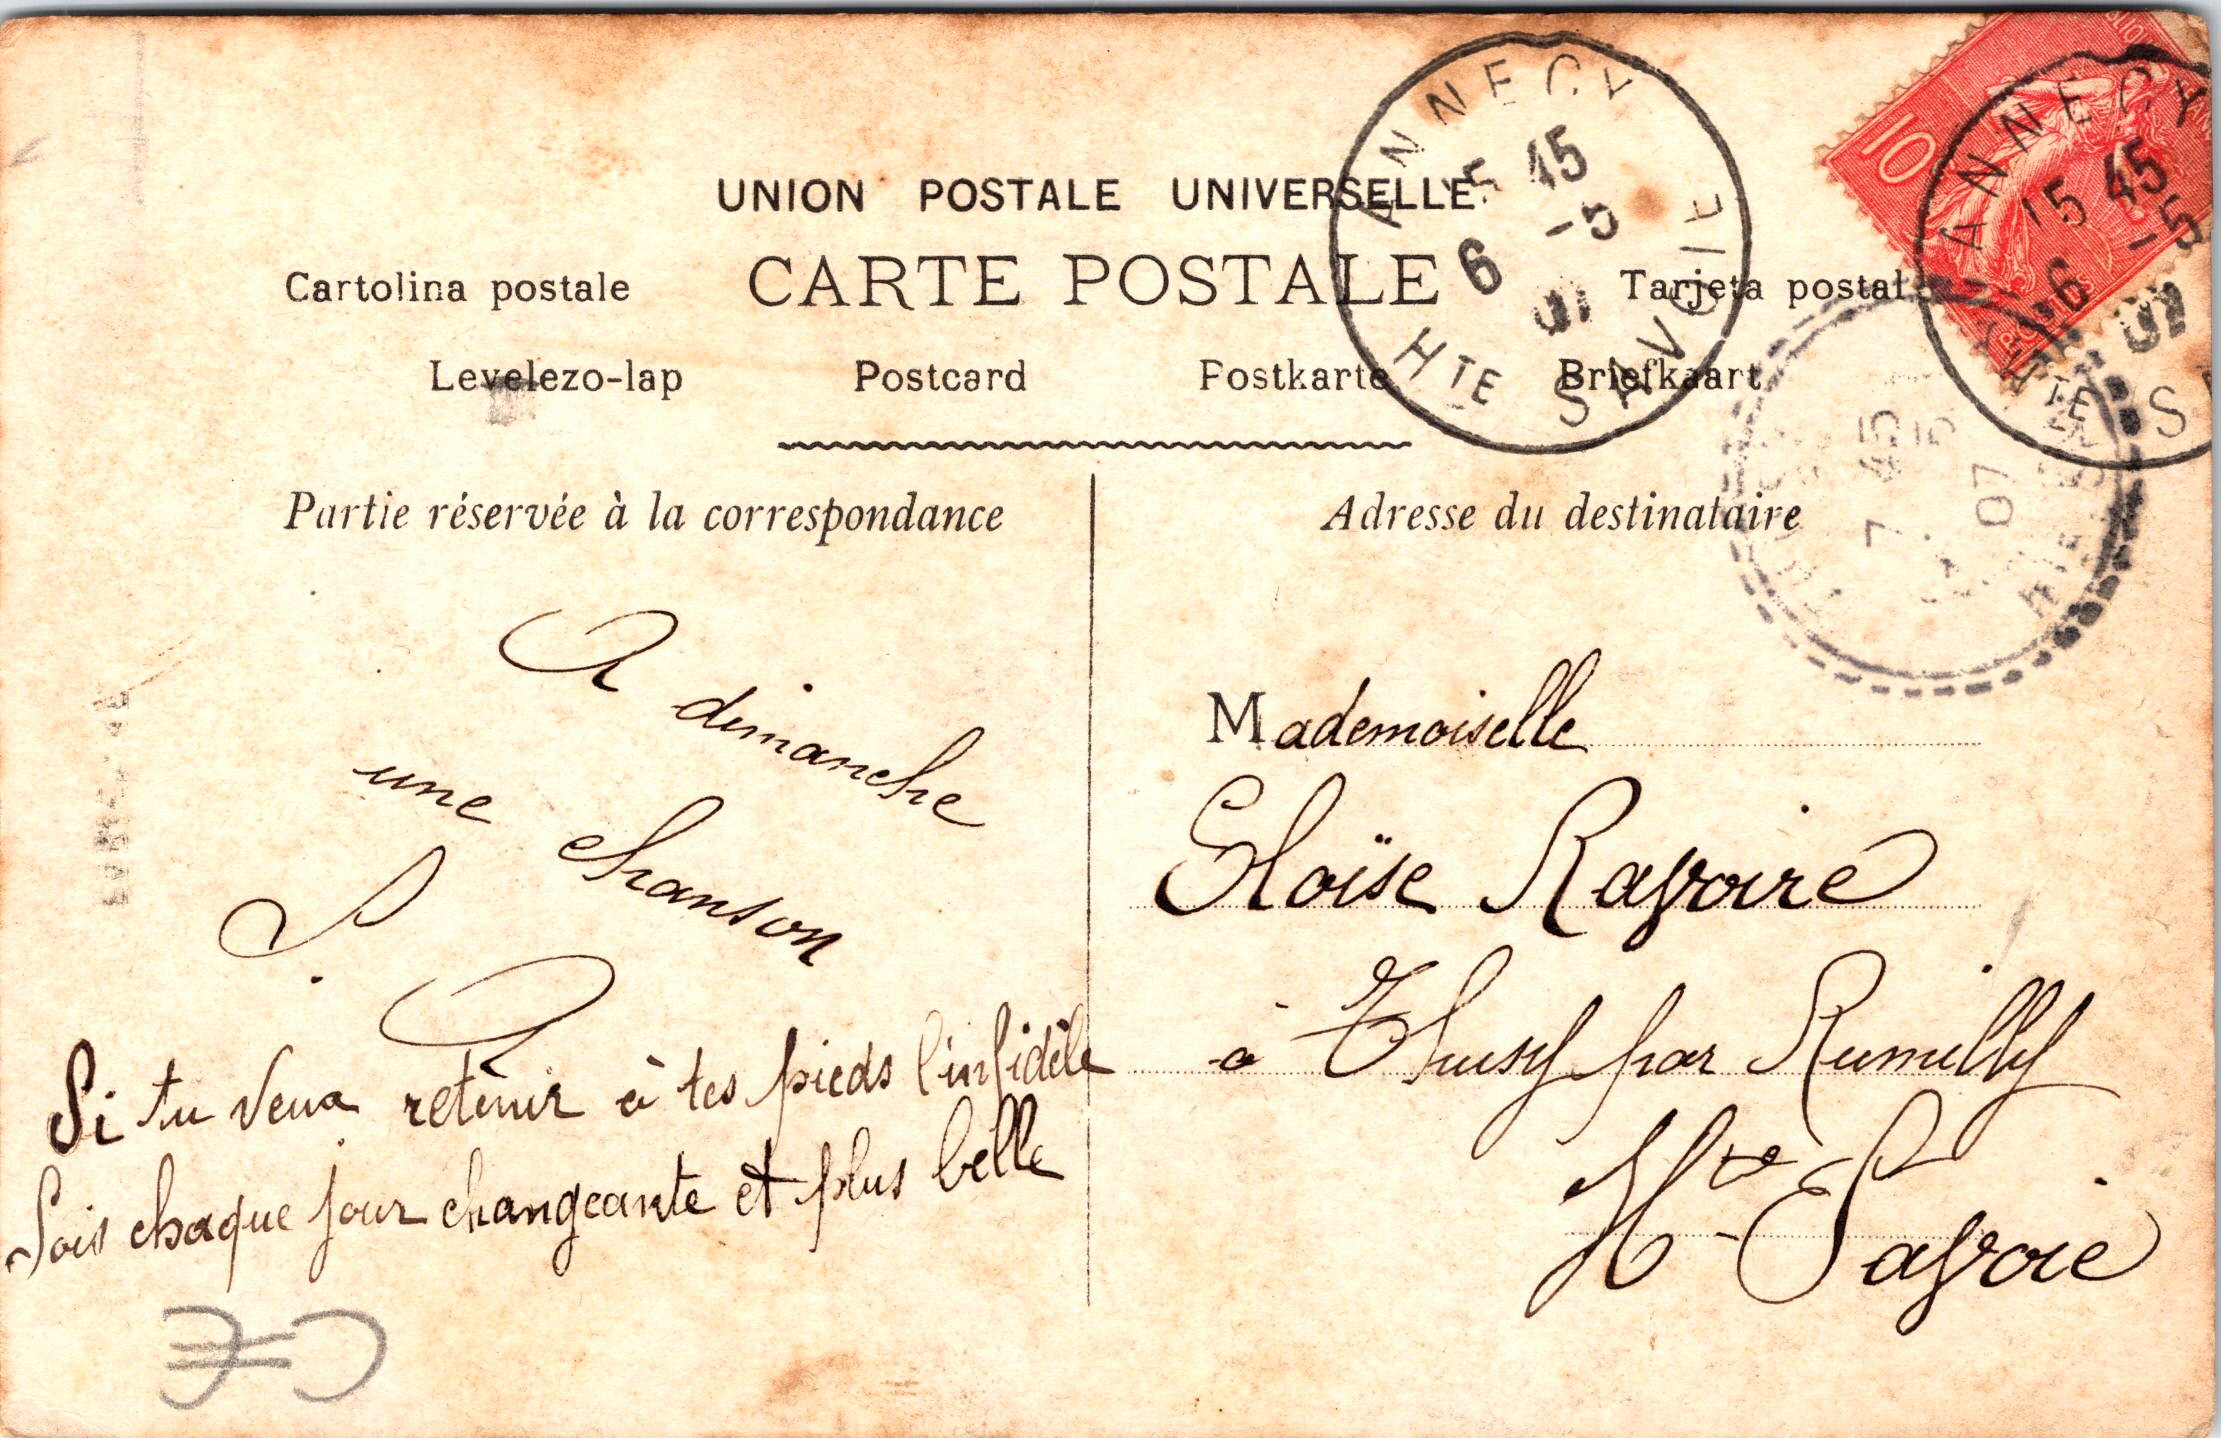 UNION POSTALE UNIVERSELLE
CARTE POSTALE
Cartolina postale
Tarjeta postal
Levelezo-lap Postcard Postkarte Briefkaart
ANNECY
15 45
6 -5
07
HTE SAVOIE
10
ANNECY
15 45
6 -5
07
HTE S
7 45
5
07
Partie réservée à la correspondance
Adresse du destinataire
A dimanche
une chanson
Si tu veux retenir à tes pieds l'infidèle
Sois chaque jour changeante et plus belle
Mademoiselle
Eloïse Ravoire
à Thusy par Rumilly
Hte - Savoie